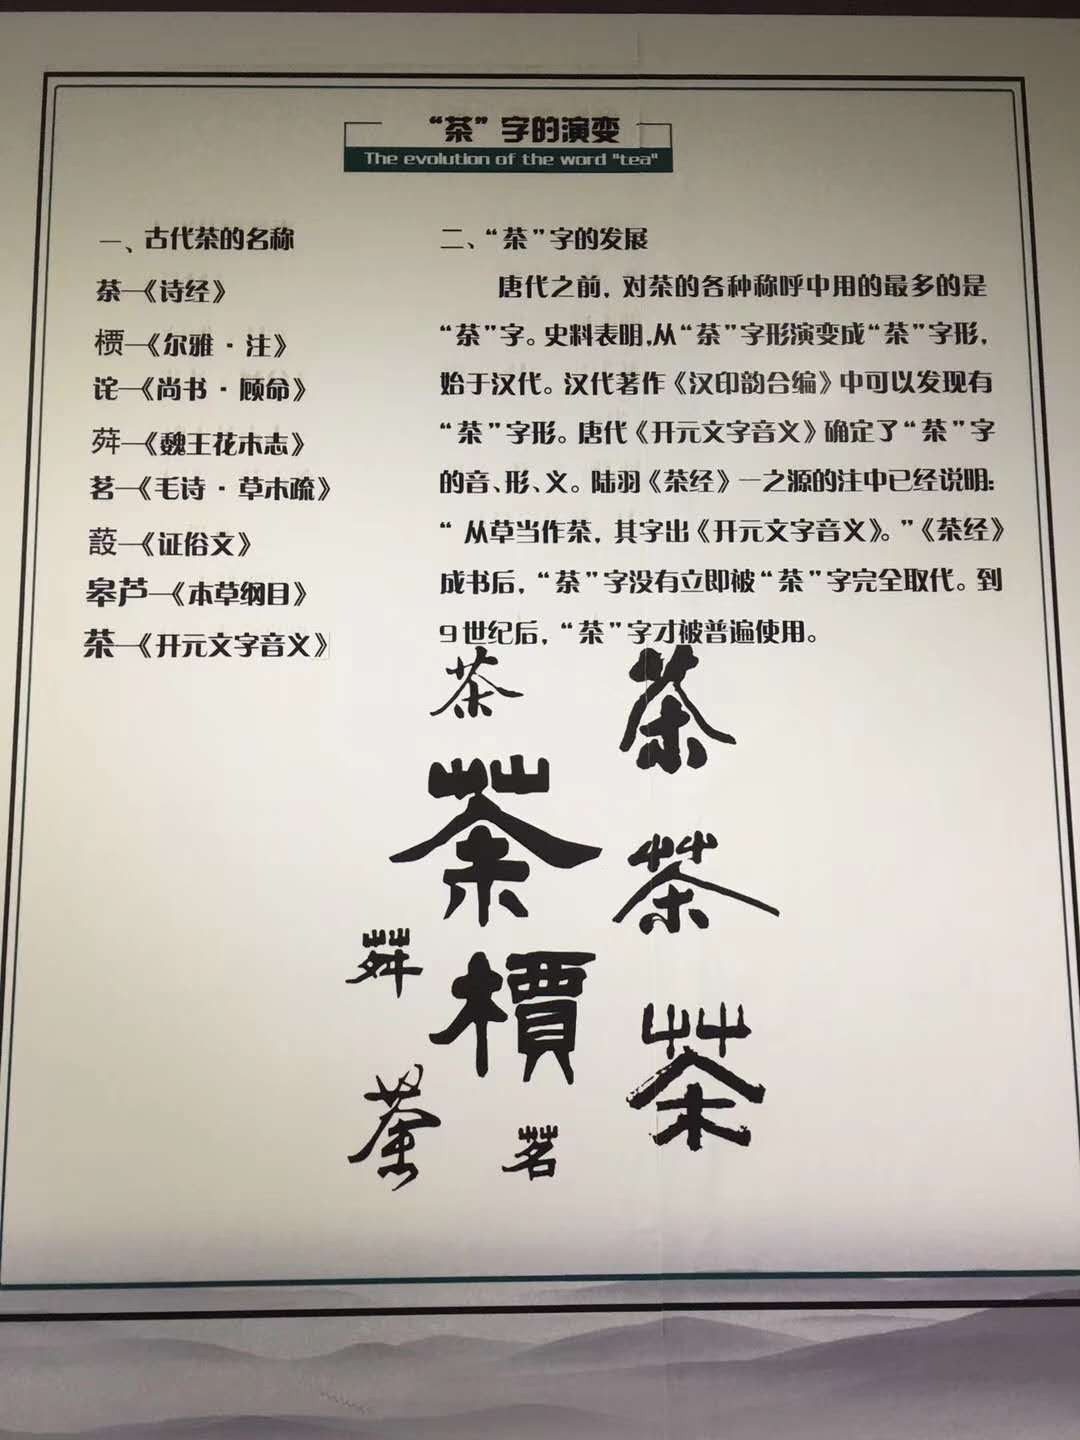 “茶”字的演变
The evolution of the word "tea"
一、古代茶的名称
荼—《诗经》
槚—《尔雅·注》
诧—《尚书·顾命》
荈—《魏王花木志》
茗—《毛诗·草木疏》
蔎—《证俗文》
皋芦—《本草纲目》
茶—《开元文字音义》
二、“茶”字的发展
唐代之前，对茶的各种称呼中用的最多的是
“荼”字。史料表明,从“荼”字形演变成“茶”字形,
始于汉代。汉代著作《汉印韵合编》中可以发现有
“茶”字形。唐代《开元文字音义》确定了“茶”字
的音、形、义。陆羽《茶经》一之源的注中已经说明：
“从草当作茶，其字出《开元文字音义》。”《茶经》
成书后，“荼”字没有立即被“茶”字完全取代。到
9世纪后，“茶”字才被普遍使用。
茶
茶
荼
茶
荈
檟
茶
荼
茗